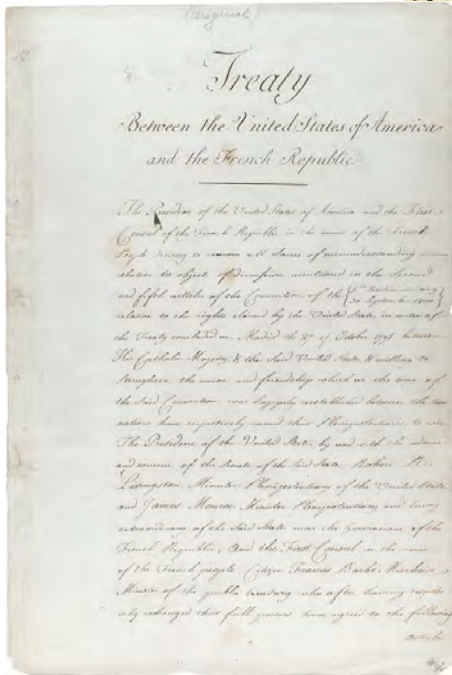 (Original)
Treaty
Between the United States of America
and the French Republic
The President of the United States of America and the First
Consul of the French Republic in the name of the French
People desiring to remove all Source of misunderstanding
relative to objects of discussion mentioned in the Second
and fifth articles of the Convention of the
30 September 1800
relative to the rights claimed by the United States in virtue of
the Treaty concluded at Madrid the 27 of October 1795, between
His Catholic Majesty, & the Said United States, & willing to
Strengthen the union and friendship which at the time of
the Said Convention was happily reestablished between the two
nations have respectively named their Plenipotentiaries to wit
The President of the United States, by and with the advice
and consent of the Senate of the Said States; Robert R.
Livingston Minister Plenipotentiary of the United States
and James Monroe Minister Plenipotentiary and Envoy
extraordinary of the Said States near the Government of the
French Republic; And the First Consul in the name
of the French people, Citizen Francis Barbé Marbois
Minister of the public treasury who after having respectiv
ely exchanged their full powers have agreed to the following
articles